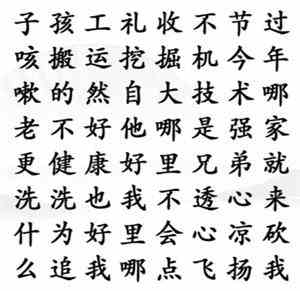 子孩工礼收不节过
咳搬运挖掘机今年
嗽的然自大技术哪
老不好他哪是强家
更健康好里兄弟就
洗洗也我不透心来
什为好里会心凉砍
么追我哪点飞扬我